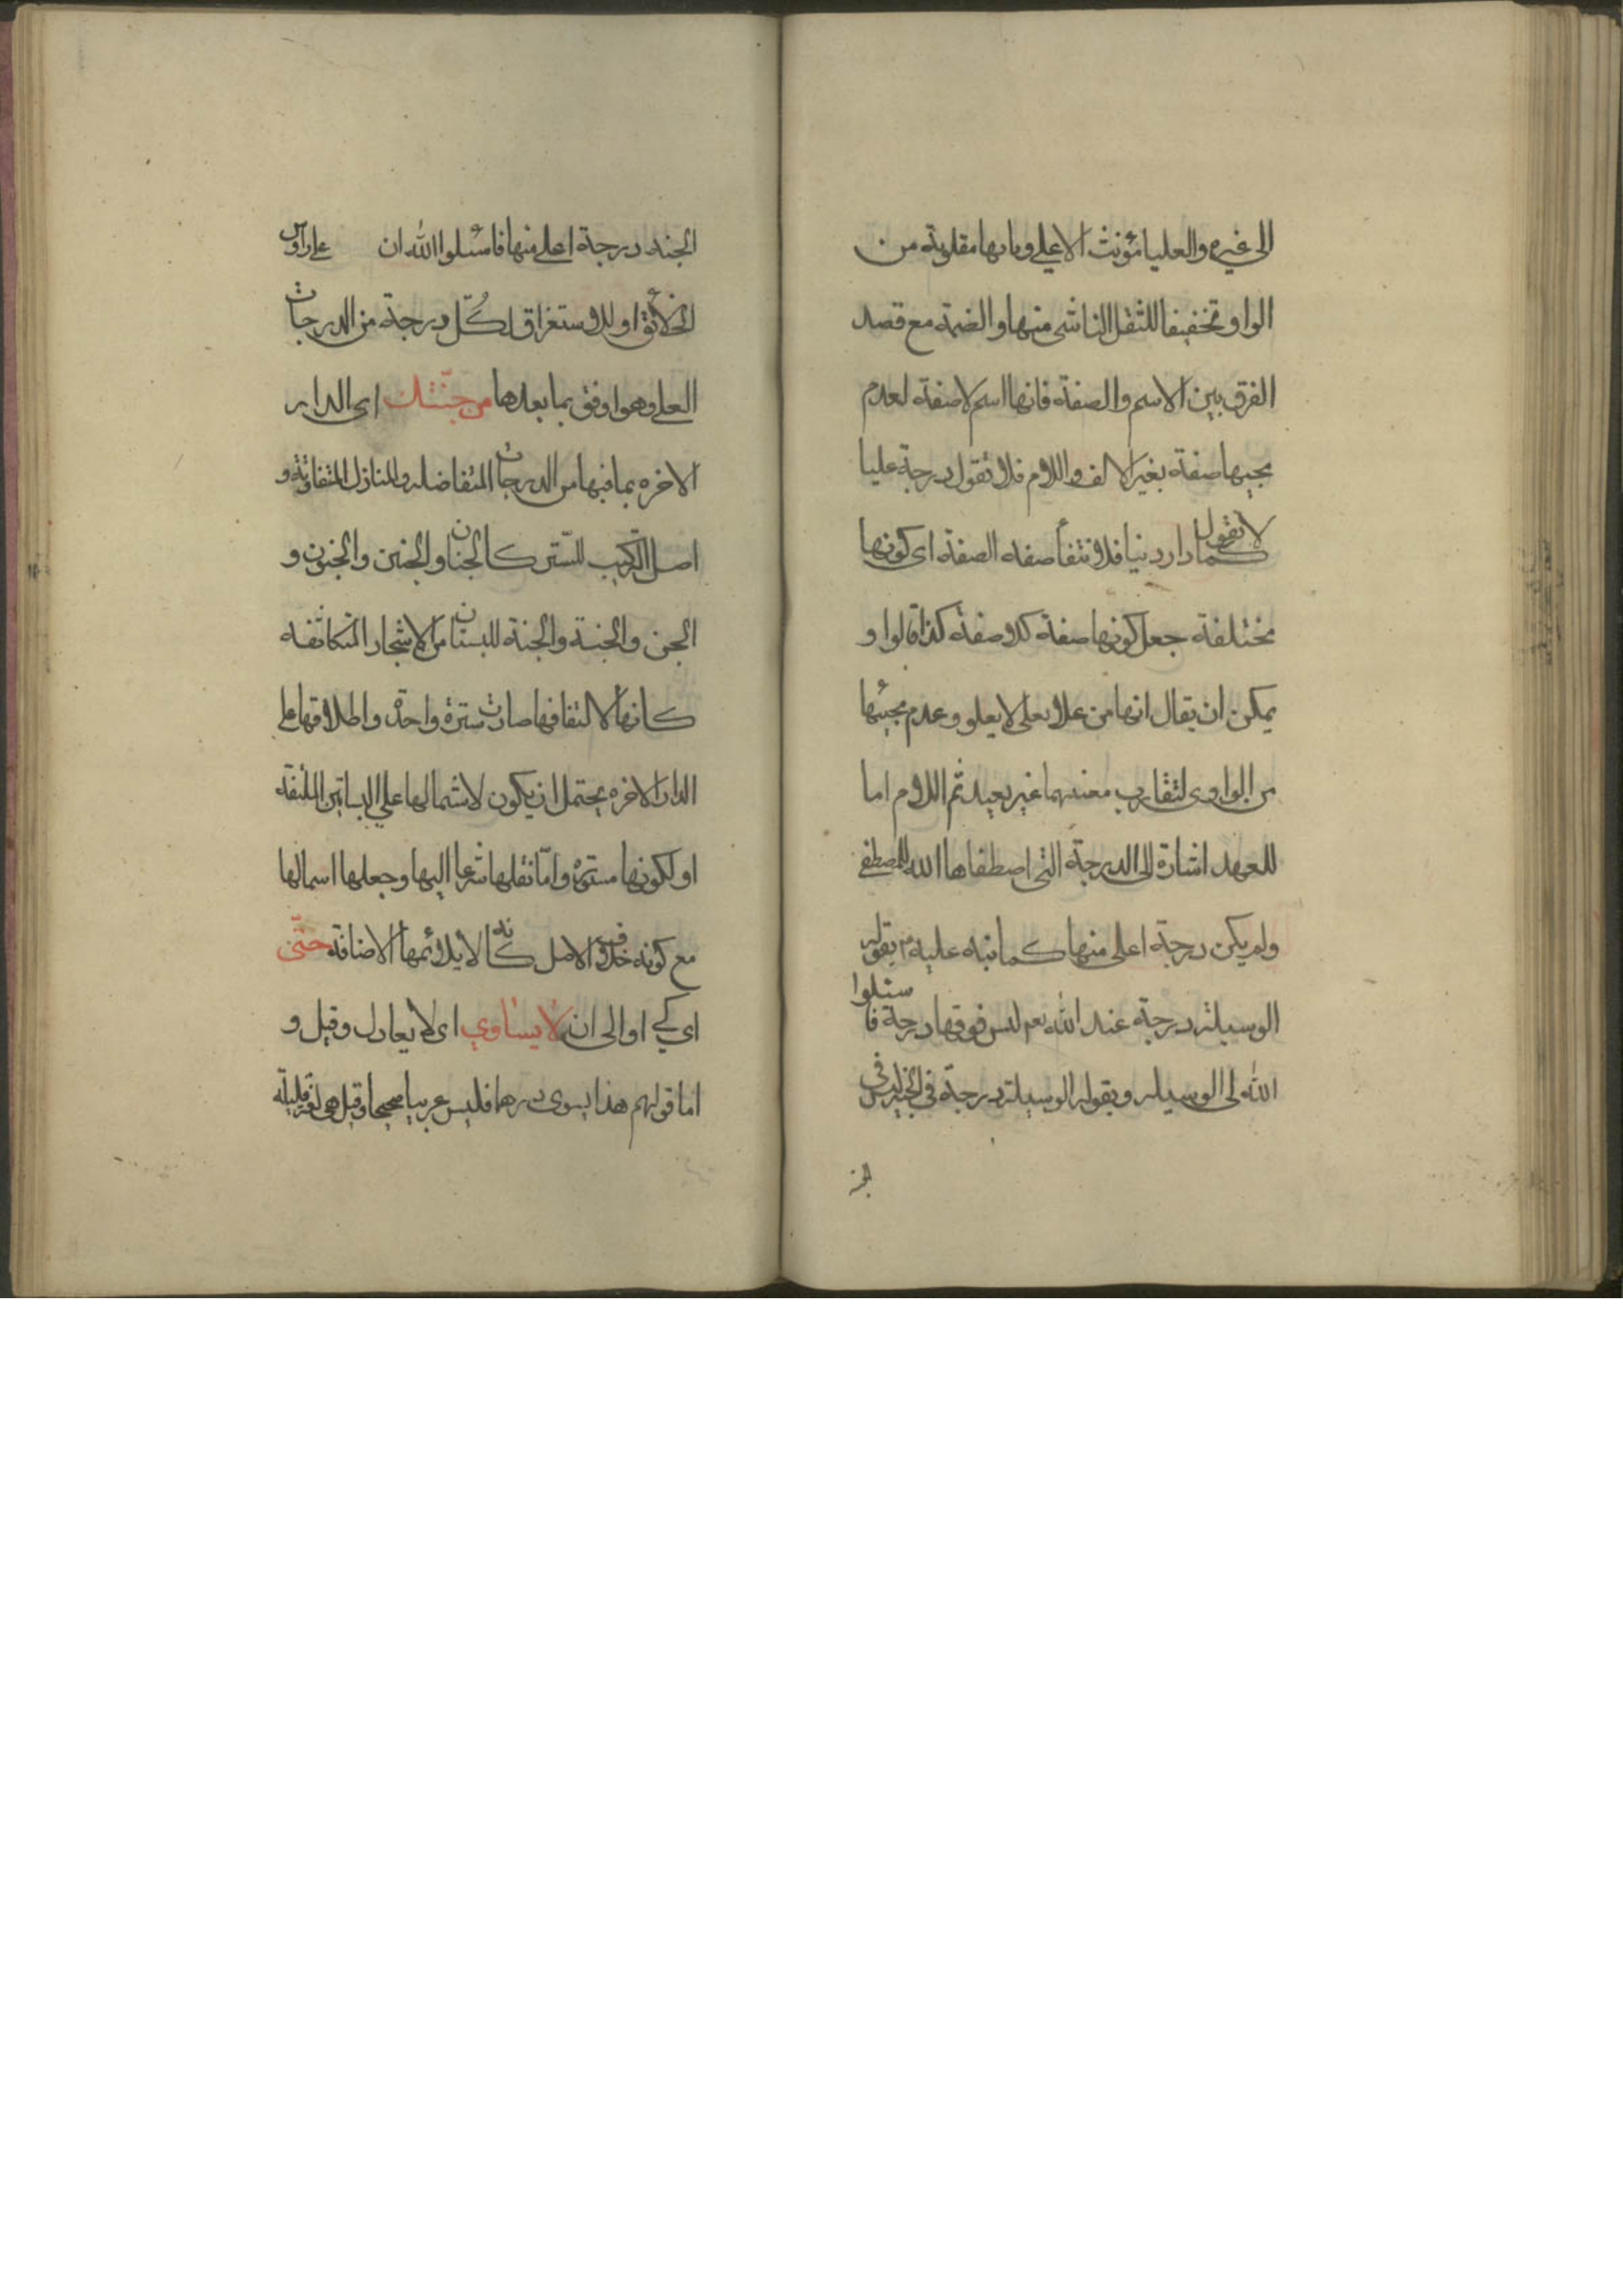 الى غيره والعليا مؤنث الاعلي وياىها مقلوبة من
الواو تخفيفا للثقل الناشى منها والضمة مع قصد
الفرق بين الاسم والصفة فانها اسم لا صفة لعدم
مجيها صفة بغير الالف واللام فلا تقول درجة عليا
كما لا تقول دار دنيا فلا تنفأ صفه الصفة اى كونها
مختلفة جعل كونها صفة كلا صفة كذا قالوا و
يمكن ان يقال انها من علا يعلى لا يعلو وعدم مجيئها
من الواوى لتقارب معنيهما غير بعيد ثم اللام اما
للعهد اشارة الى الدرجة التى اصطفاها الله للمصطفى
ولم يكن درجة اعلى منها كما نبه عليه م بقوله
الوسيلة درجة عند الله تعم ليس فوقها درجة فاسئلوا
الله لى الوسيله وبقوله الوسيلة درجة في الجنة ليس فى
الجنة
الجنه درجة اعلى منها فاسئلوا الله ان على رؤس
الخلائق او للاستغراق لكل درجة من الدرجات
العلى وهو اوفق بما بعدها من جنتك اى الدار
الاخره بما فيها من الدرجات المتفاضله والمنازل المتفاوتة و
اصل التركيب للستر كالجنان والجنين والجنون و
الجن والجنة والجنة للبستان من الاشجار المتكاثفه
كانها لالتفافها صارت سترة واحدة واطلاقها على
الدار الاخره يحتمل ان يكون لاشتمالها على البساتين الملتفة
او لكونها مستورة وامّا نقلها شرعا اليها وجعلها اسما لها
مع كونه خلاف الاصل كانه لا يلائمها الاضافة حتّى
اي كي او الى ان لا يساوي اى لا يعادل وقيل و
اما قولهم هذا يسوى درهما فليس عربيا صحيحا وقيل هي لغة قليلة